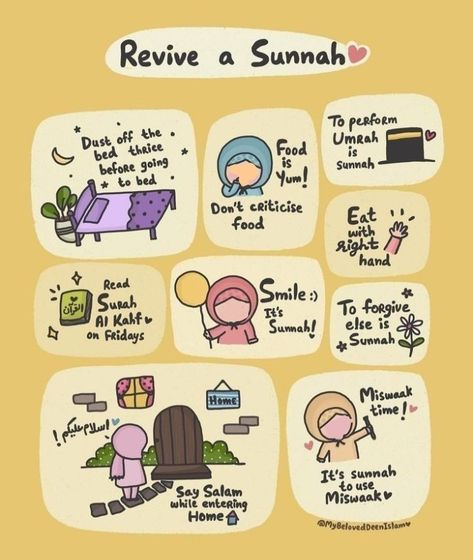 Revive a Sunnah
Dust off the
bed thrice
before going
to bed
Food
is
Yum!
Don't criticise
food
To perform
Umrah
is
Sunnah
Eat
with
right
hand
Read
Surah
Al Kahf
on Fridays
القرآن
Smile :)
It's
Sunnah!
To forgive
else is
Sunnah
اسلام عليكم!
Home
Say Salam
while entering
Home
Miswaak
time!
It's sunnah
to use
Miswaak
@MyBelovedDeenIslam